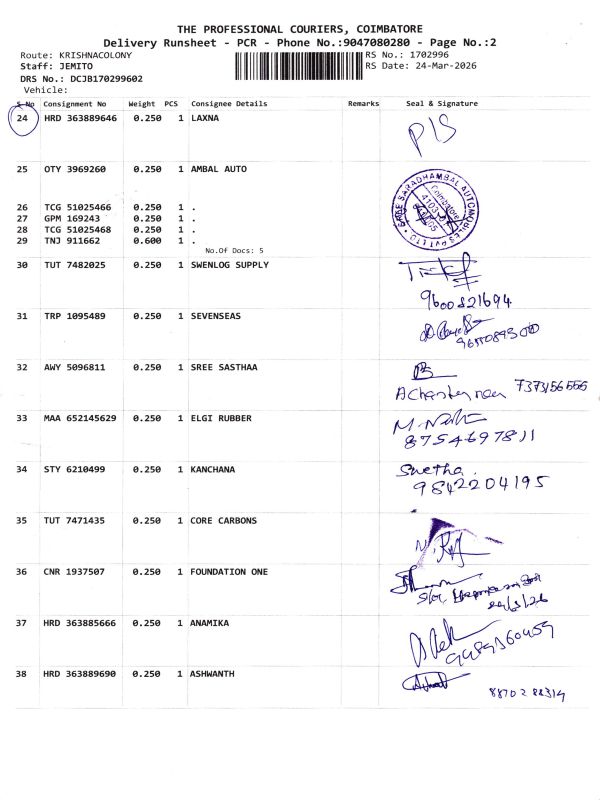 THE PROFESSIONAL COURIERS, COIMBATORE
Delivery Runsheet - PCR - Phone No.:9047080280 - Page No.:2
Route: KRISHNACOLONY
RS No.: 1702996
Staff: JEMITO
RS Date: 24-Mar-2026
DRS No.: DCJB170299602
Vehicle:
S No Consignment No Weight PCS Consignee Details Remarks Seal & Signature
24 HRD 363889646 0.250 1 LAXNA
P/S
25 OTY 3969260 0.250 1 AMBAL AUTO
SARADHAMBAL AUTOMOBILES PVT LTD
Coimbatore
26 TCG 51025466 0.250 1 .
27 GPM 169243 0.250 1 .
28 TCG 51025468 0.250 1 .
29 TNJ 911662 0.600 1 .
No.Of Docs: 5
30 TUT 7482025 0.250 1 SWENLOG SUPPLY
9600821694
31 TRP 1095489 0.250 1 SEVENSEAS
32 AWY 5096811 0.250 1 SREE SASTHAA
7373156556
33 MAA 652145629 0.250 1 ELGI RUBBER
8754697811
34 STY 6210499 0.250 1 KANCHANA
Swetha.
9842204195
35 TUT 7471435 0.250 1 CORE CARBONS
36 CNR 1937507 0.250 1 FOUNDATION ONE
37 HRD 363885666 0.250 1 ANAMIKA
38 HRD 363889690 0.250 1 ASHWANTH